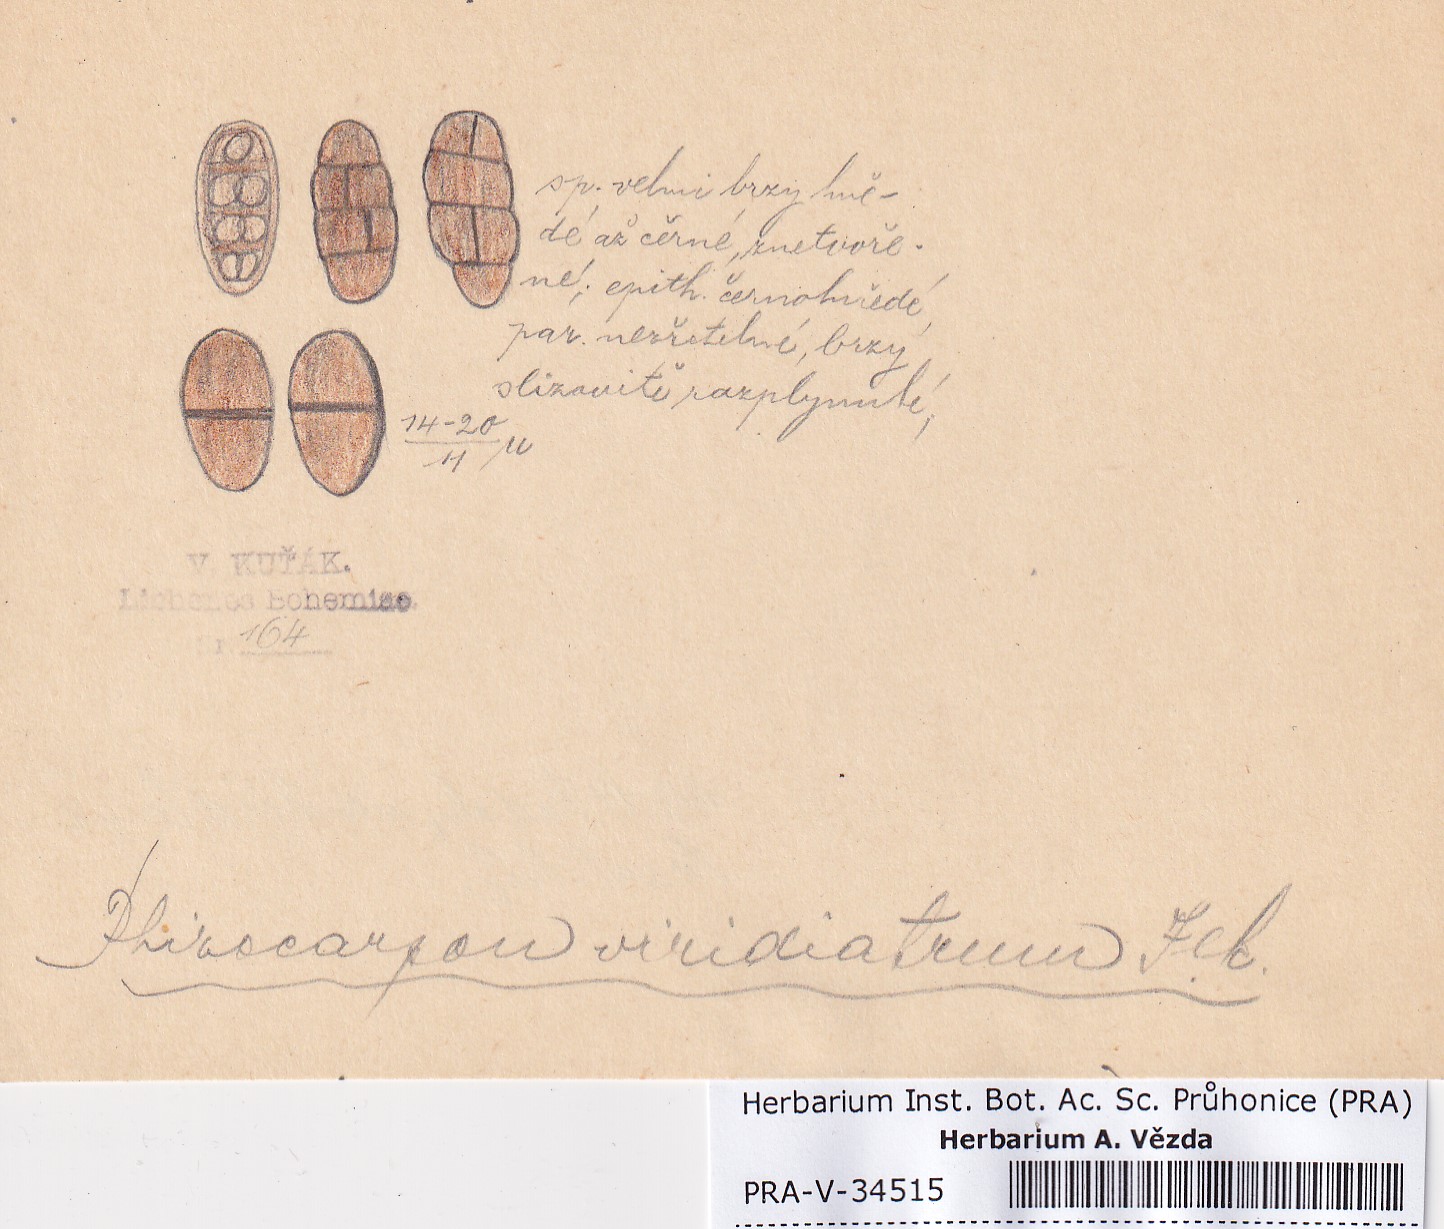 sp. velmi brzy hně-
dé až černé, znetvoře-
né; epith. černohnědé,
par. nezřetelné, brzy
slizovitě rozplynulé,
14-20
11 µ
V. KUŤÁK.
Lichenes Bohemiae.
164
Rhizocarpon viridiatrum Flk.
Herbarium Inst. Bot. Ac. Sc. Průhonice (PRA)
Herbarium A. Vězda
PRA-V-34515